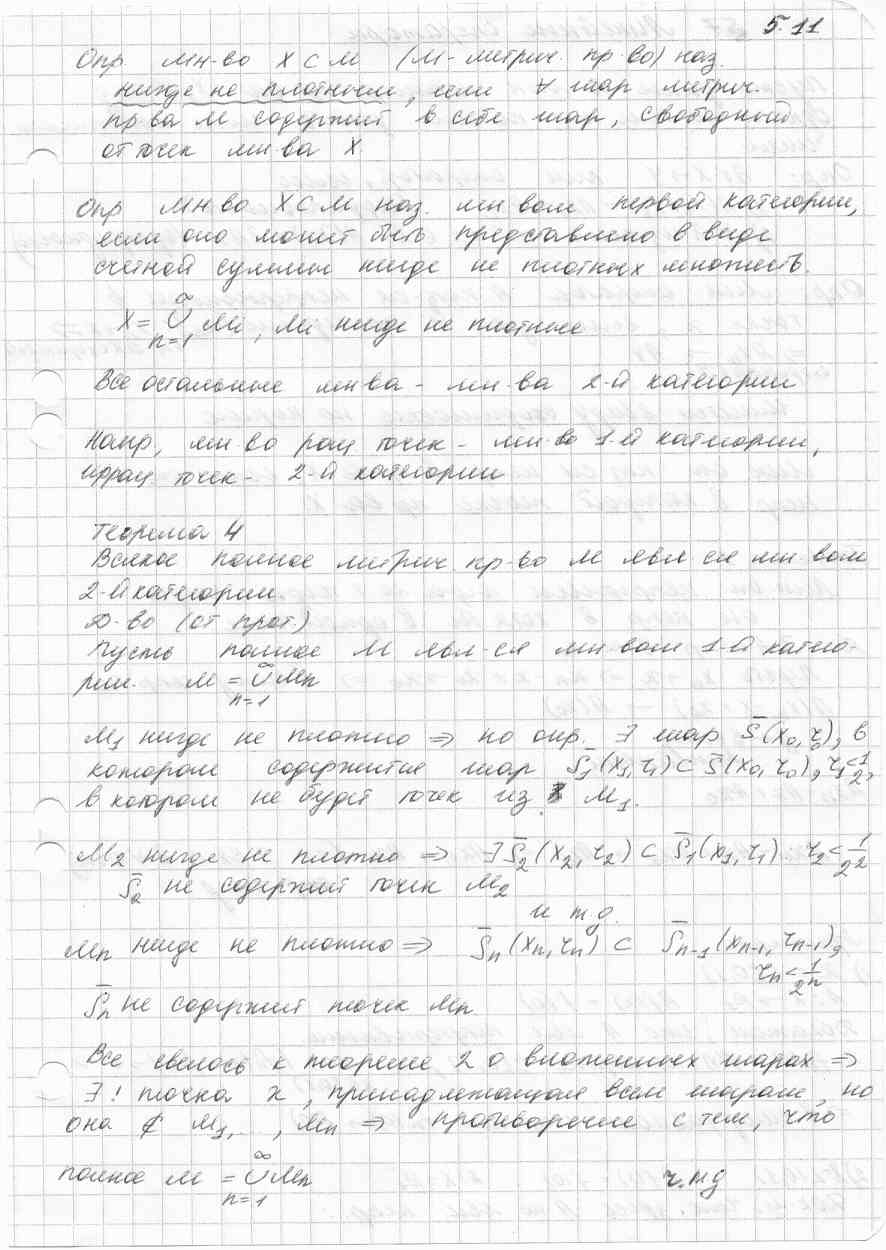 5.11
Опр. мн-во X ⊂ M (M - метрич. пр-во) наз.
нигде не плотным, если ∀ шар метрич.
пр-ва M содержит в себе шар, свободный
от точек мн-ва X.
Опр мн-во X ⊂ M наз. мн-вом первой категории,
если оно может быть представлено в виде
счетной суммы нигде не плотных множеств.
X = ∞ ∪ n=1 Mi, Mi нигде не плотные
Все остальные мн-ва - мн-ва 2-й категории
Напр, мн-во рац точек - мн-во 1-й категории,
иррац точек - 2-й категории
Теорема 4
Всякое полное метрич пр-во M явл-ся мн-вом
2-й категории.
Д-во (от прот.)
Пусть полное M явл-ся мн-вом 1-й катего-
рии. M = ∞ ∪ n=1 Mn
M1 нигде не плотно ⇒ по опр. ∃ шар S̄(x0, r0), в
котором содержится шар S̄1(x1, r1) ⊂ S̄(x0, r0), r1 < 1/2,
в котором не будет точек из M1.
M2 нигде не плотно ⇒ ∃ S̄2(x2, r2) ⊂ S̄1(x1, r1) r2 < 1/2²
S̄2 не содержит точек M2
и т д.
Mn нигде не плотно ⇒ S̄n(xn, rn) ⊂ S̄n-1(xn-1, rn-1),
rn < 1/2ⁿ
S̄n не содержит точек Mn.
Все свелось к теореме 2 о вложенных шарах ⇒
∃! точка x, принадлежащая всем шарам, но
она ∉ M1, .. , Mn ⇒ противоречие с тем, что
полное M = ∞ ∪ n=1 Mn ч.тд